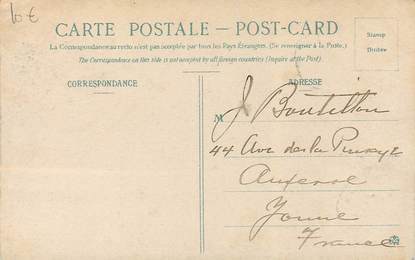 10 €
CARTE POSTALE — POST-CARD
La Correspondance au recto n'est pas acceptée par tous les Pays Étrangers. (Se renseigner à la Poste.)
The Correspondence on this side is not accepted by all foreign countries (Inquire at the Post)
Stamp
Timbre
CORRESPONDANCE
ADRESSE
M J Boutillon
44 Ave de la
Auxerre
Yonne
France